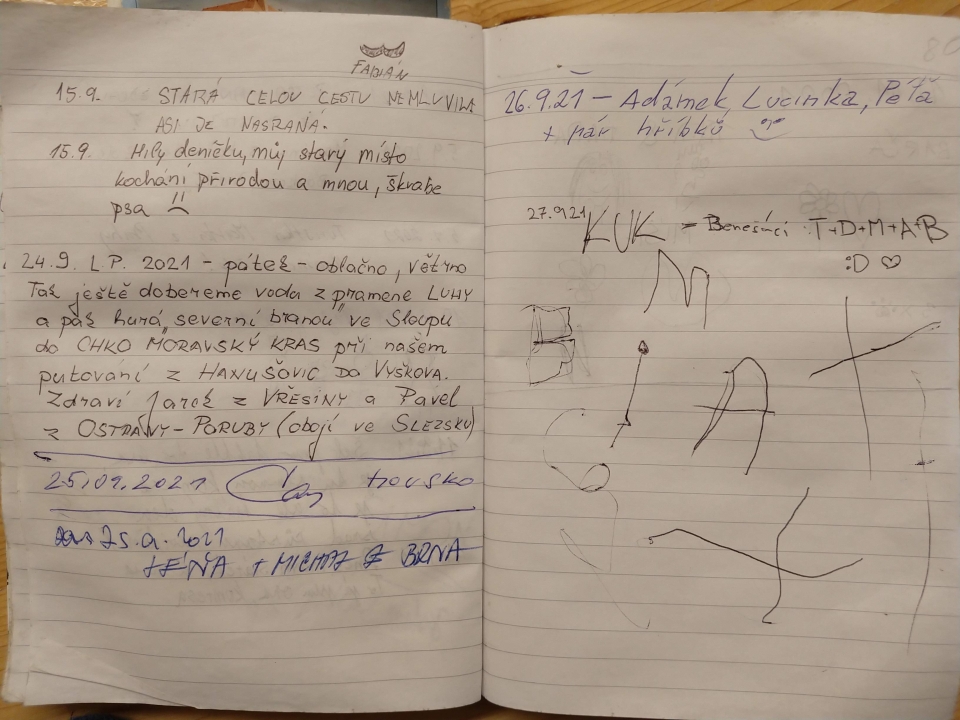 FABIÁN
15.9. STARÁ CELOU CESTU NEMLUVILA.
ASI JE NASRANÁ.
15.9. Milý deníčku, můj starý místo
kochání přírodou a mnou, škrabe
psa
24.9. L.P. 2021 - pátek - oblačno, větrno
Tak ještě dobereme voda z pramene LUHY
a pak hurá "severní branou" ve Sloupu
do CHKO MORAVSKÝ KRAS při našem
putování z HANUŠOVIC DO VYŠKOVA.
Zdraví Jarek z VŘESINY a Pavel
z OSTRAVY-PORUBY (obojí ve SLEZSKU)
25.09.2021
25.9.2021
+ MICHAL Z BRNA
26.9.21 - Adámek, Lucinka, Péťa
+ pár hříbků
27.9.21 KUK - Benešáci T+D+M+A+B
:D ♡